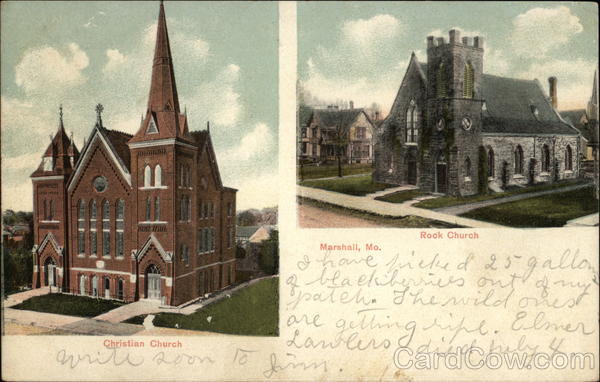 © CardCow.com
Rock Church
Marshall, Mo.
I have picked 25 gallon
of blackberries out of my
patch. The wild ones
are getting ripe. Elmer
Lawlers died July 4
CardCow.com
Christian Church
Write soon to
Jim.